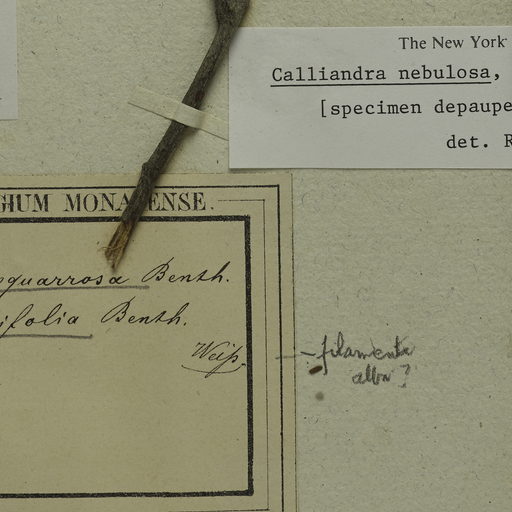 The New York
Calliandra nebulosa,
[specimen depaupe
det. R
GIUM MONA ENSE.
squarrosa Benth.
ifolia Benth.
Weiß
filamenta
alba?